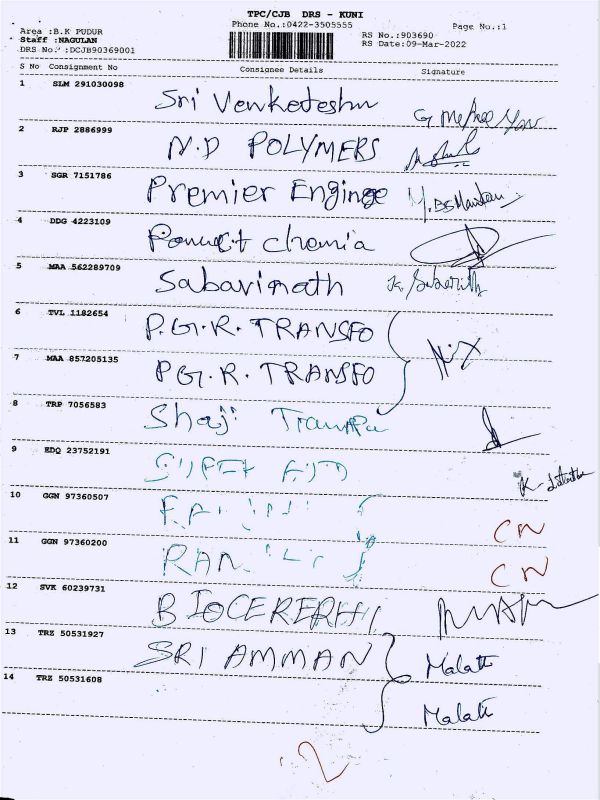 TPC/CJB DRS - KUNI
Phone No.:0422-3505555
Page No.:1
Area :B.K PUDUR
Staff :NAGULAN
DRS No. :DCJB90369001
RS No.:903690
RS Date:09-Mar-2022
S No Consignment No Consignee Details Signature
1 SLM 291030098 Sri Venkateshn
2 RJP 2886999 N.D POLYMERS
3 SGR 7151786 Premier Enginge
4 DDG 4223109 chemia
5 MAA 562289709 Sabarinath
6 TVL 1182654 P.G.R. TRANSFO
7 MAA 857205135 P.G.R. TRANSFO
8 TRP 7056583 Shaji
9 EDQ 23752191
10 GGN 97360507 CN
11 GGN 97360200 CN
12 SVK 60239731
13 TRZ 50531927 SRI AMMAN Malati
14 TRZ 50531608 Malati
2